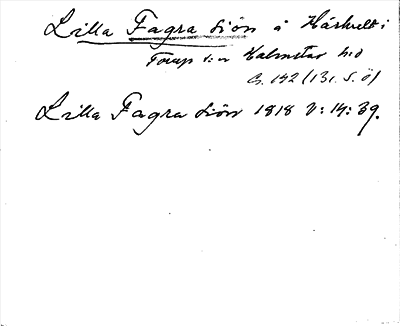 Lilla Fagra Siön å Hårkult i
Torup s:n Halmstad h:d
G. 142 (131. S.Ö)
Lilla Fagra Siön 1818 V: 14: 39.